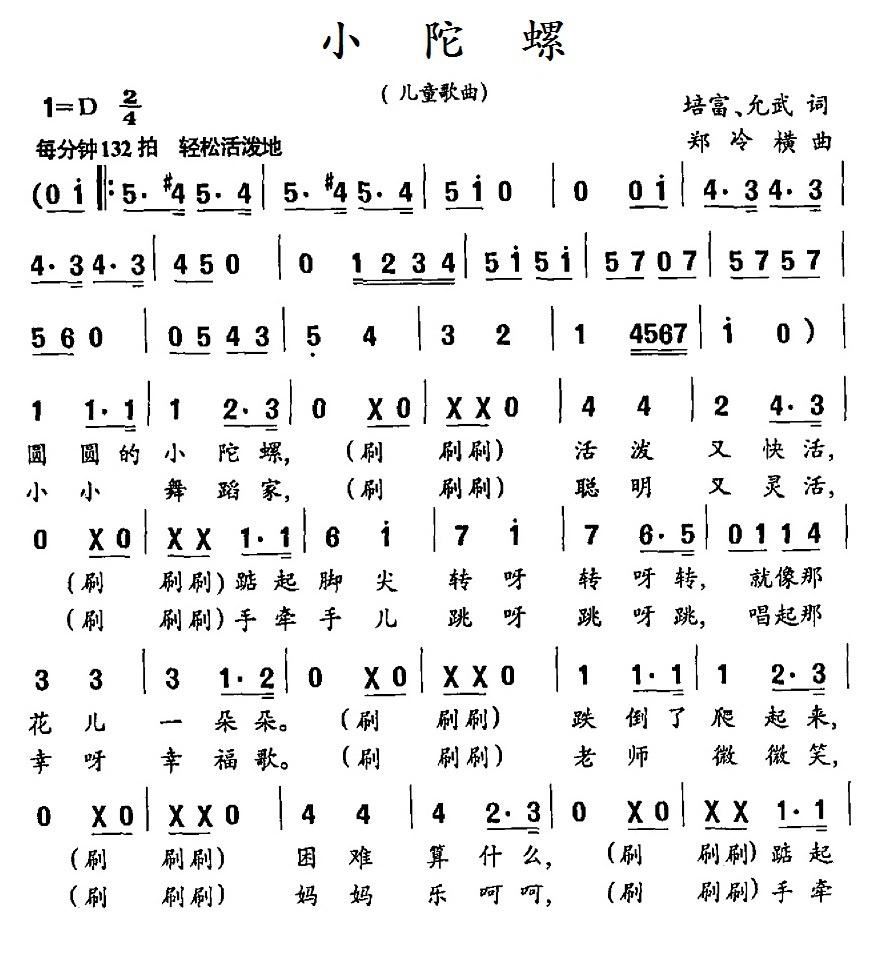 小 陀 螺
(儿童歌曲)
1=D 2/4
培富、允武 词
每分钟132拍 轻松活泼地
郑 冷 横 曲
(0 i |: 5. #4 5. 4 | 5. #4 5. 4 | 5 i 0 | 0 0 i | 4. 3 4. 3 |
4. 3 4. 3 | 4 5 0 | 0 1 2 3 4 | 5 i 5 i | 5 7 0 7 | 5 7 5 7 |
5 6 0 | 0 5 4 3 | 5 4 | 3 2 | 1 4567 | i 0 ) |
1 1. 1 | 1 2. 3 | 0 X 0 | X X 0 | 4 4 | 2 4. 3 |
圆 圆 的 小 陀 螺, (刷 刷刷) 活 泼 又 快 活,
小 小 舞 蹈 家, (刷 刷刷) 聪 明 又 灵 活,
0 X 0 | X X 1. 1 | 6 i | 7 i | 7 6. 5 | 0 1 1 4 |
(刷 刷刷) 踮 起 脚 尖 转 呀 转 呀 转, 就像那
(刷 刷刷) 手 牵 手 儿 跳 呀 跳 呀 跳, 唱起那
3 3 | 3 1. 2 | 0 X 0 | X X 0 | 1 1. 1 | 1 2. 3 |
花 儿 一 朵 朵。 (刷 刷刷) 跌 倒 了 爬 起 来,
幸 呀 幸 福 歌。 (刷 刷刷) 老 师 微 微 笑,
0 X 0 | X X 0 | 4 4 | 4 2. 3 | 0 X 0 | X X 1. 1 |
(刷 刷刷) 困 难 算 什 么, (刷 刷刷) 踮 起
(刷 刷刷) 妈 妈 乐 呵 呵, (刷 刷刷) 手 牵